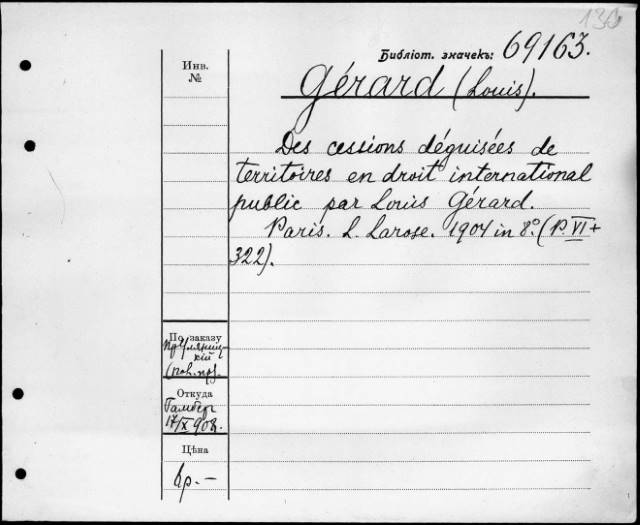 136
Библіот. значекъ: 69163.
Инв.
№
Gérard (Louis).
Des cessions déguisées de
territoires en droit international
public par Louis Gérard.
Paris. L. Larose. 1904 in 8º. (P. VI +
322).
По заказу
кій
Откуда
17/X 908.
Цѣна
р. –